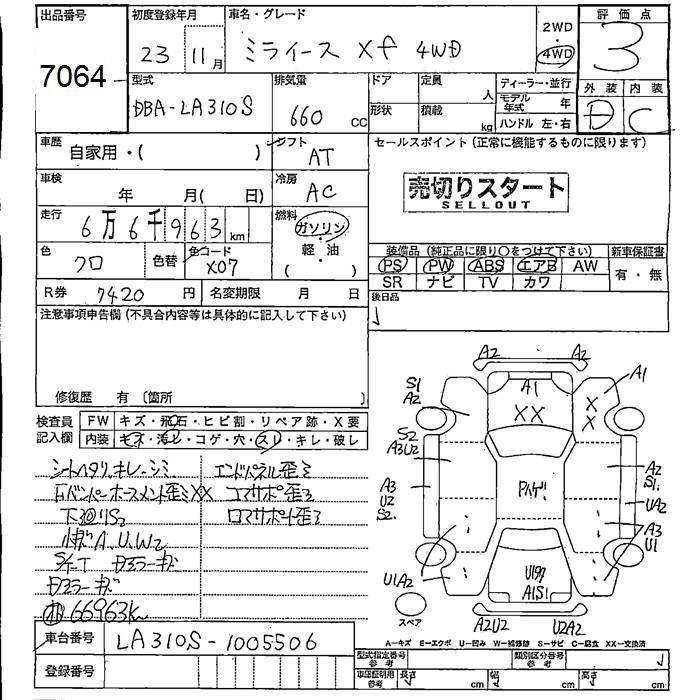 出品番号
7064
初度登録年月
23 11月
車名・グレード
ミライース Xf 4WD
2WD
・
4WD
評価点
3
外装 内装
D C
型式
DBA-LA310S
排気量
660 cc
ドア
定員
人
形状
積載
kg
ディーラー・並行
モデル年式 年
ハンドル 左・右
車歴
自家用・( )
シフト
AT
セールスポイント (正常に機能するものに限ります)
売切りスタート
SELLOUT
車検
年 月( 日)
冷房
AC
走行
6万6千963km
燃料
ガソリン
・
軽・油
( )
色
クロ
色替
色コード
X07
装備品 (純正品に限り○をつけて下さい)
新車保証書
PS PW ABS エアB AW
SR ナビ TV カワ
有・無
R券 7420円
名変期限 月 日
後日品
注意事項申告欄 (不具合内容等は具体的に記入して下さい)
修復歴 有 〔箇所 〕
検査員記入欄
FW キズ・飛石・ヒビ割・リペア跡・X要
内装 キズ・汚レ・コゲ・穴・スレ・キレ・破レ
シートヘタリ、キレ、シミ
エンドパネル歪ミ
コアサポ歪ミ
下回リS2
小キズA、U、W2
66963K
車台番号 LA310S-1005506
登録番号
A2 A2
A1
XX
A1
X
X
S1
A2
S2
A3U2
A3
U2
S2
A2
S1
UA2
A3
U1
U1A2
A1S1
スペア
A2U2 U2A2
A-キズ E-エクボ U-凹み W-補修跡 S-サビ C-腐食 XX-交換済
型式指定番号
参考
類別区分番号
参考
車庫証明用
参考
長さ cm
幅 cm
高さ cm